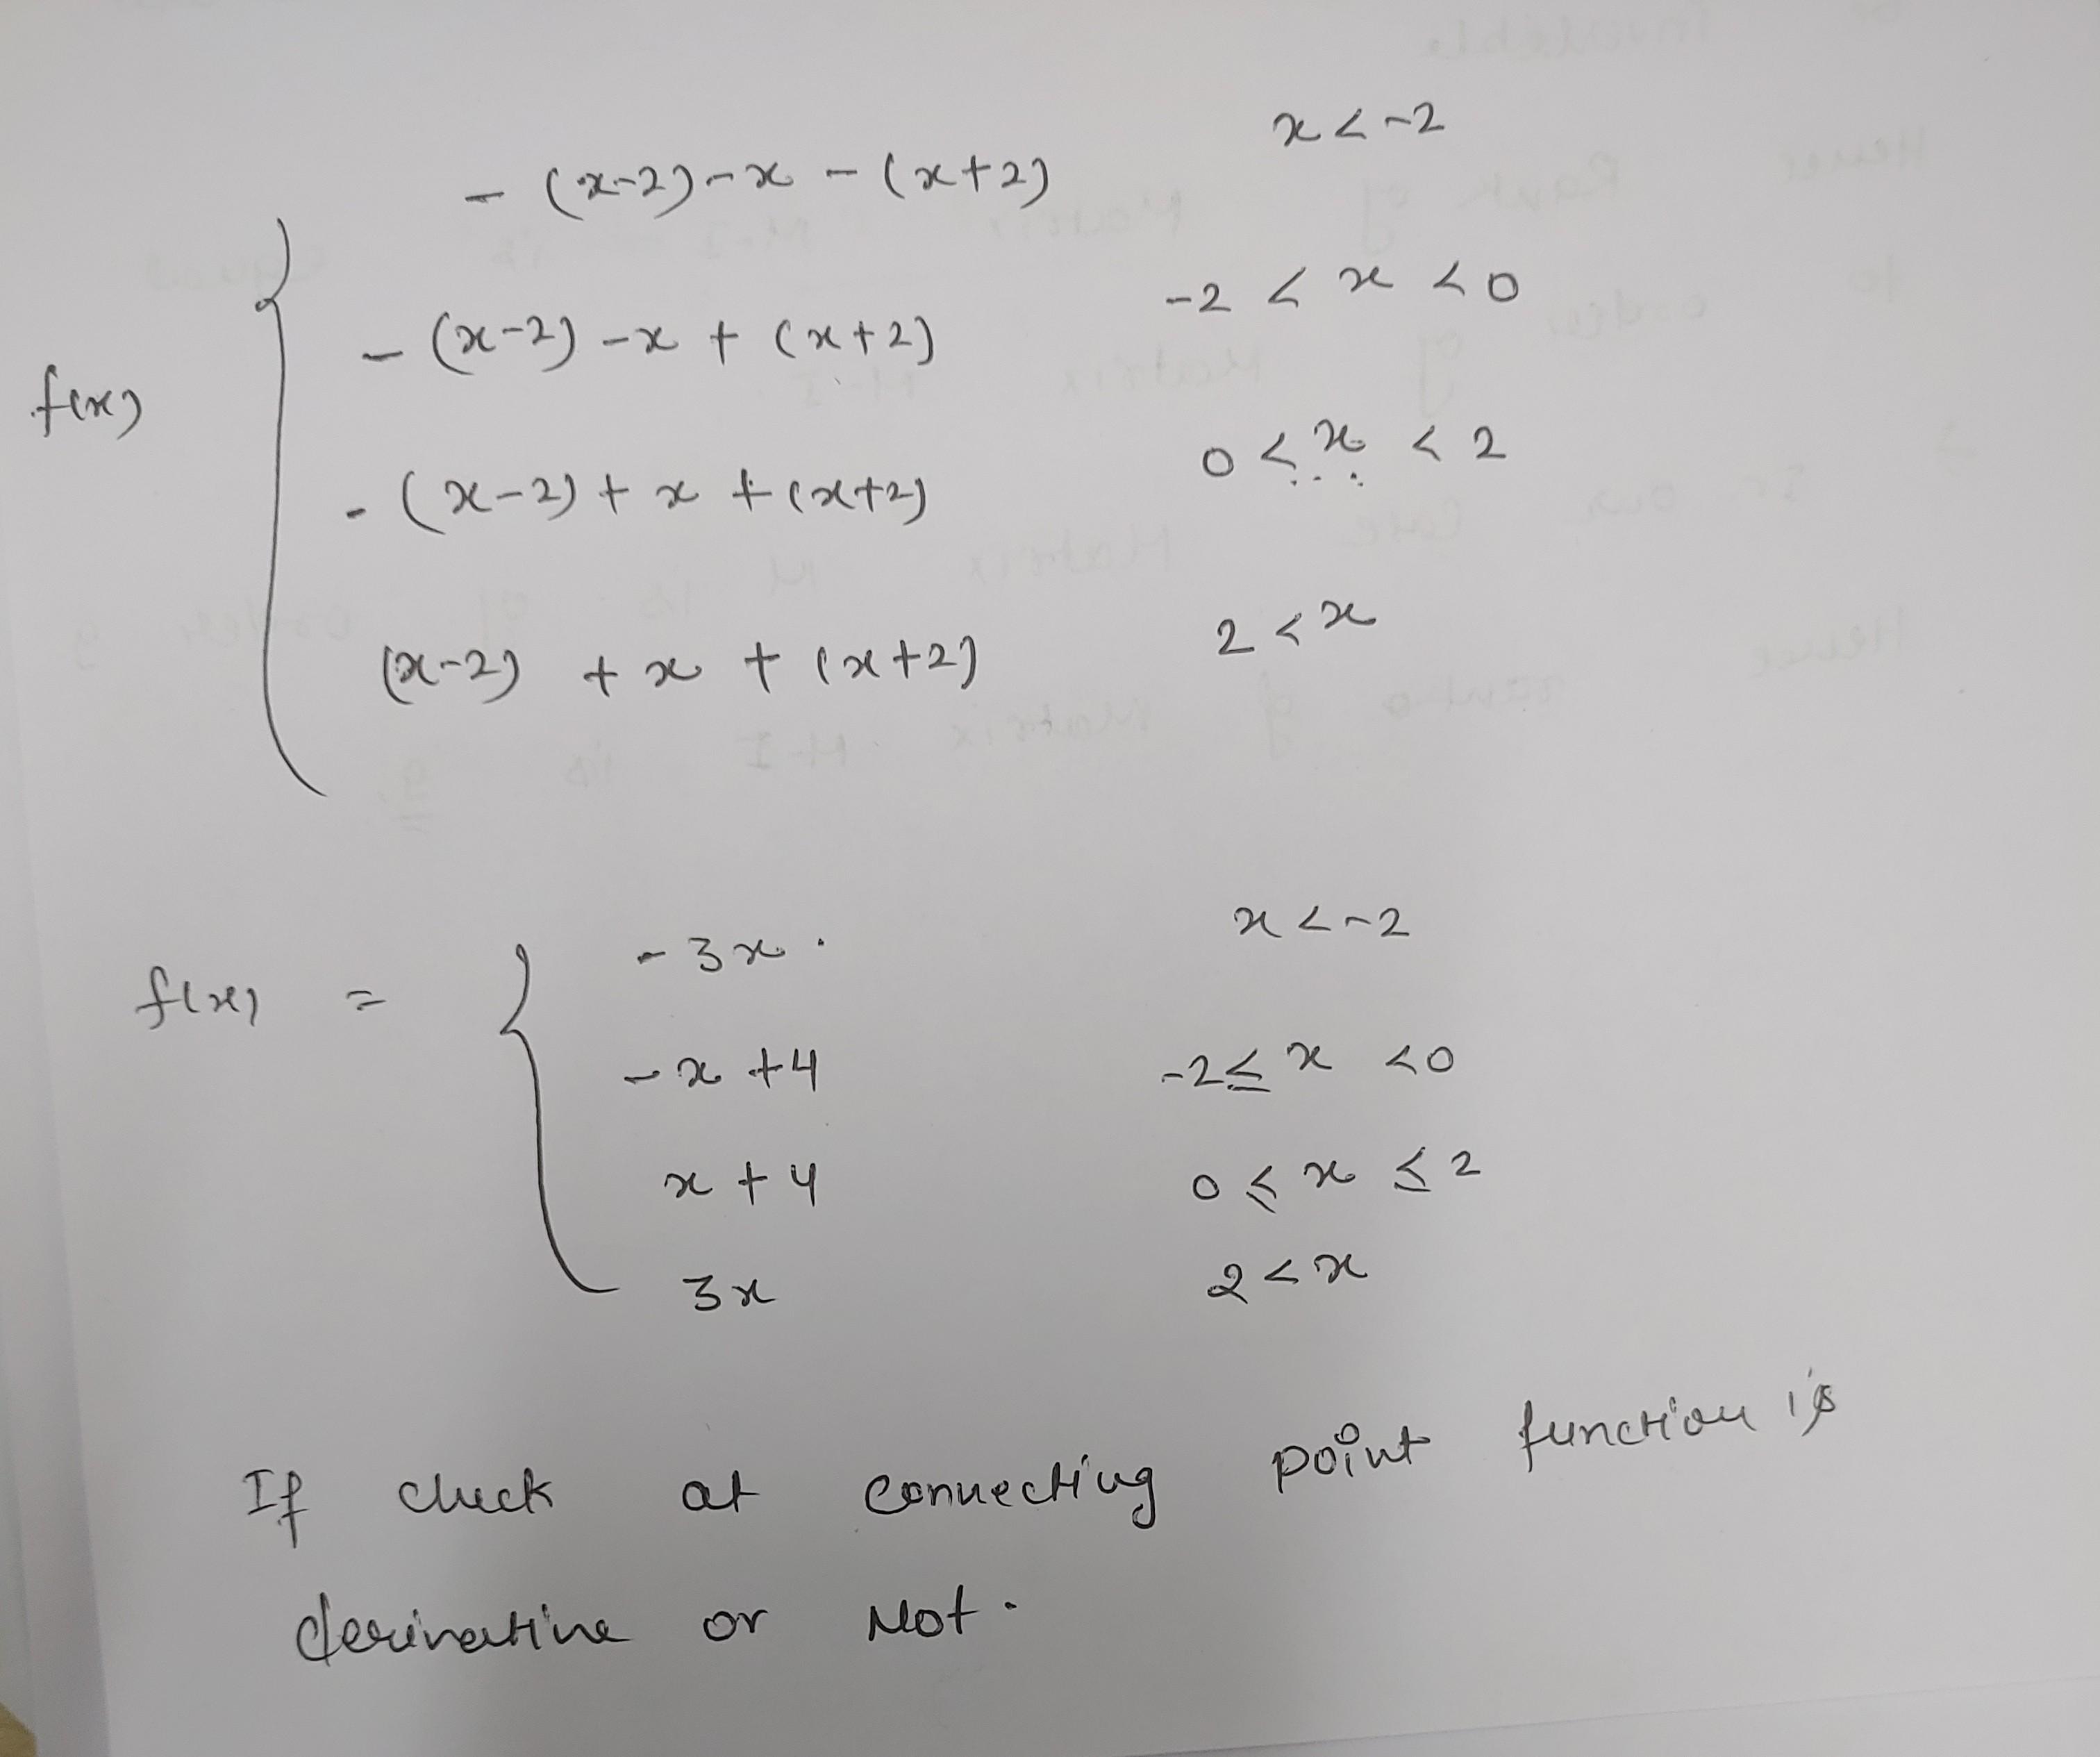 - (x-2) - x - (x+2) x < -2
- (x-2) - x + (x+2) -2 < x < 0
f(x)
- (x-2) + x + (x+2) 0 < x < 2
(x-2) + x + (x+2) 2 < x
- 3x . x < -2
f(x) =
- x + 4 -2 ≤ x < 0
x + 4 0 ≤ x ≤ 2
3x 2 < x
If check at connecting point function is
derivative or Not.